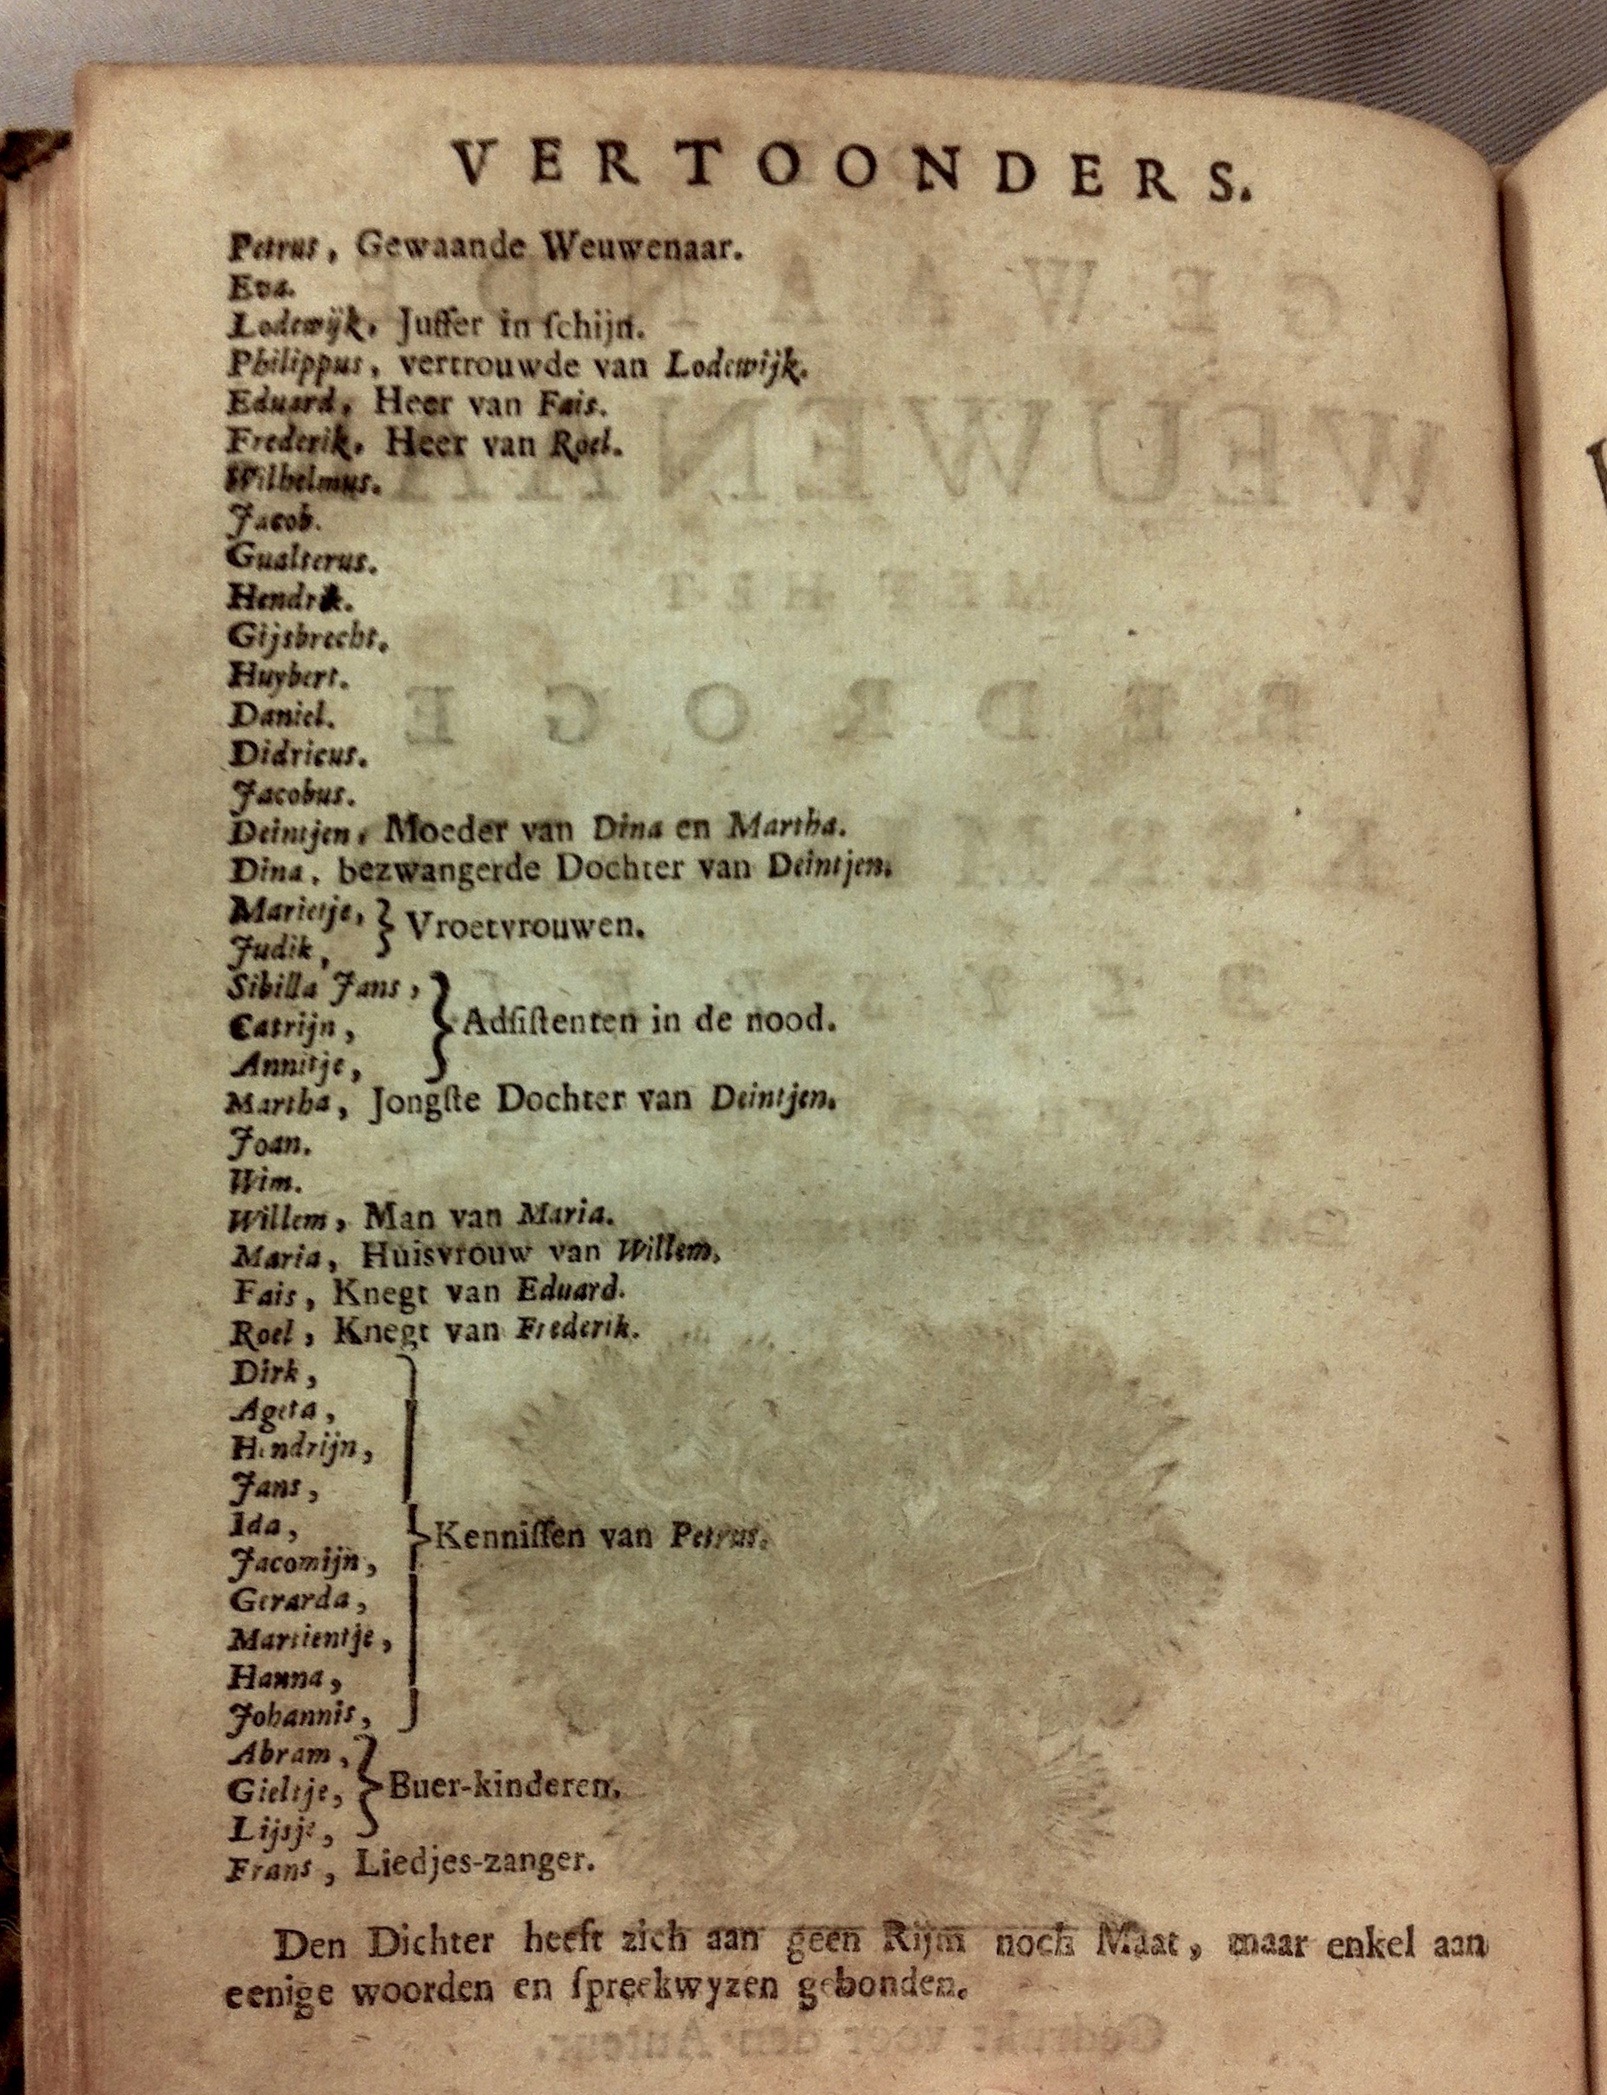 VERTOONDERS.
Petrus, Gewaande Weuwenaar.
Eva.
Lodewijk, Juffer in ſchijn.
Philippus, vertrouwde van Lodewijk.
Eduard, Heer van Fais.
Frederik, Heer van Roel.
Wilhelmus.
Jacob.
Gualterus.
Hendrik.
Gijsbrecht.
Huybert.
Daniel.
Didricus.
Jacobus.
Deintjen, Moeder van Dina en Martha.
Dina, bezwangerde Dochter van Deintjen.
Marietje,
Judik, } Vroetvrouwen.
Sibilla Jans,
Catrijn, } Adſiſtenten in de nood.
Annitje,
Martha, Jongſte Dochter van Deintjen.
Joan.
Wim.
Willem, Man van Maria.
Maria, Huisvrouw van Willem.
Fais, Knegt van Eduard.
Roel, Knegt van Frederik.
Dirk,
Ageta,
Hendrijn,
Jans,
Ida, } Kenniſſen van Petrus.
Jacomijn,
Gerarda,
Martientje,
Hanna,
Johannis,
Abram,
Gieltje, } Buer-kinderen.
Lijsje,
Frans, Liedjes-zanger.
Den Dichter heeft zich aan geen Rijm noch Maat, maar enkel aan
eenige woorden en ſpreekwyzen gebonden.